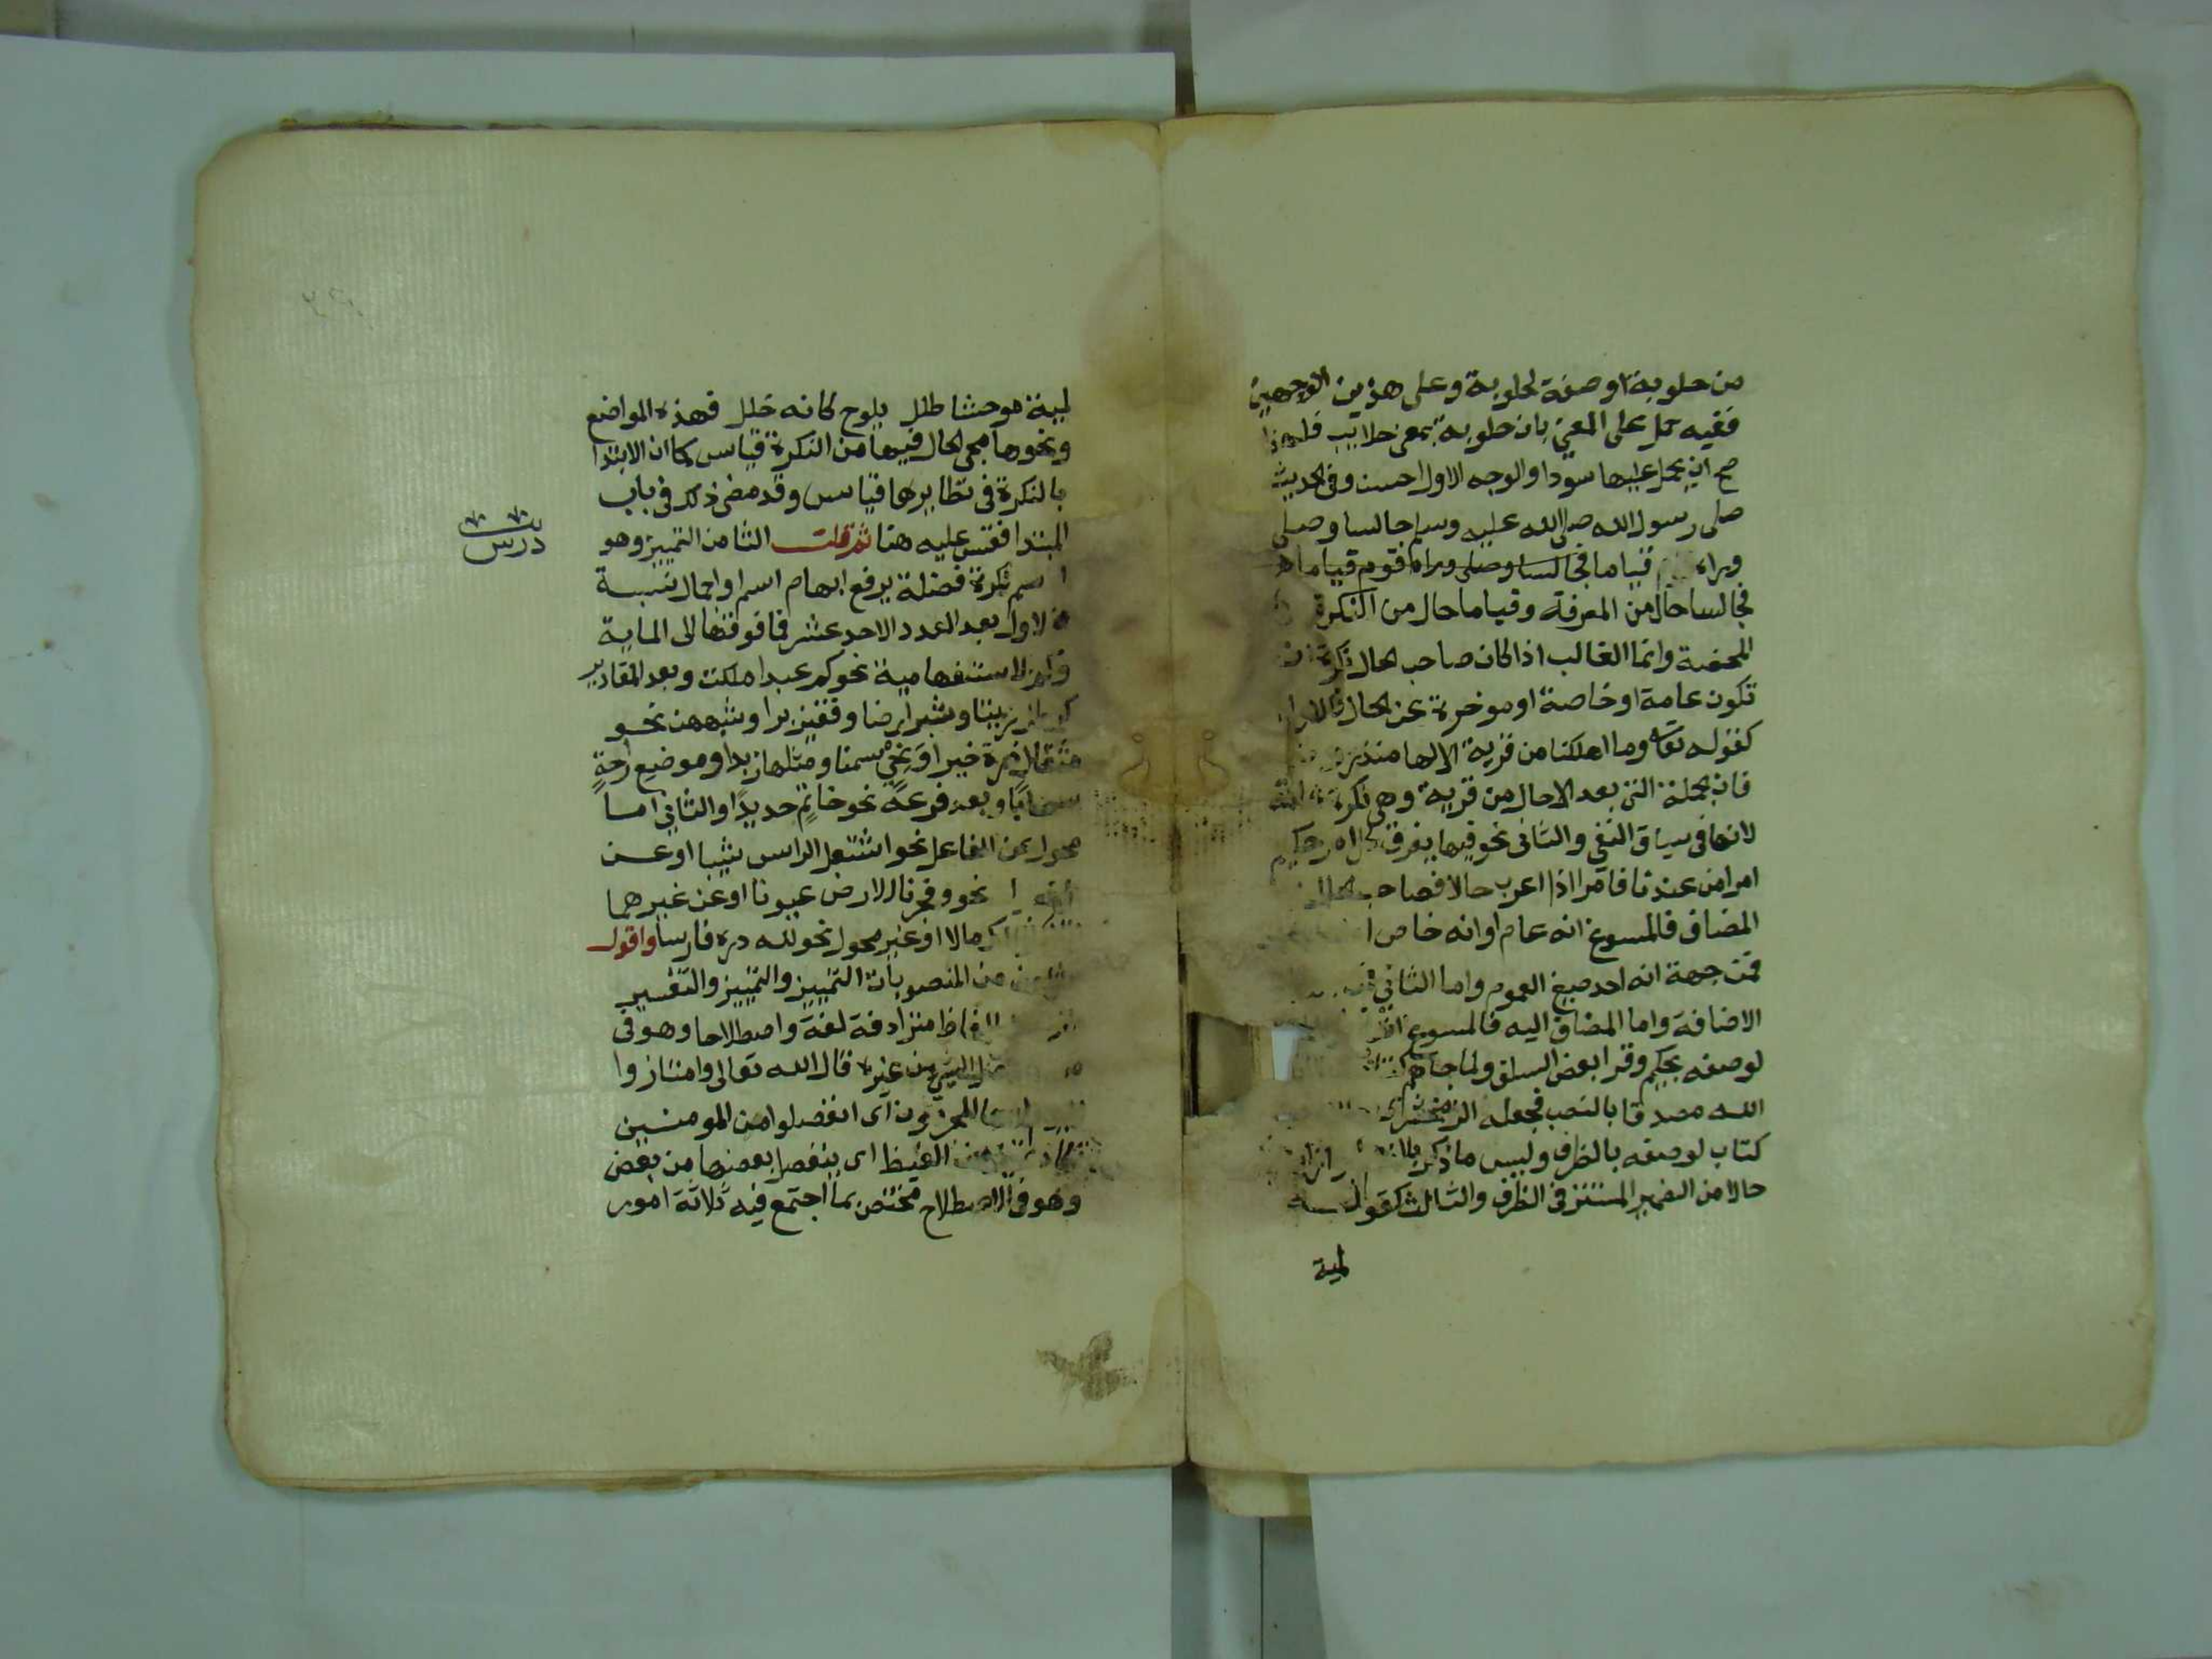 من حلوبة او صفة لحلوبة وعلى هذين الوجهين
ففيه حمل على المعنى بان حلوبة بمعنى حلايب فلهذا
صح ان يحمل عليها سودا والوجه الاول احسن وفي الحديث
صلى رسول الله صلى الله عليه وسلم جالسا وصلى
وراه قياما فجالسا وصلى وراه قوم قياما
فجالسا حال من المعرفة وقياما حال من النكرة
المحضة وانما الغالب اذا كان صاحب الحال نكرة ان
تكون عامة او خاصة او موخرة عن الحال فالاول
كقوله تعالى وما اهلكنا من قرية الا لها منذرون
فان الجملة التي بعد الا حال من قرية وهي نكرة عامة
لانها في سياق النفي والثاني نحو فيها يفرق كل امر حكيم
امرا من عندنا فامرا اذا اعرب حالا فصاحب الحال
المضاف فالمسوغ انه عام او انه خاص
فمن جهة انه احد صيغ العموم واما الثاني
الاضافة واما المضاف اليه فالمسوغ
لوصفه بحكيم وقرا بعض السلف ولما جاهم
الله مصدقا بالنصب فجعله الزمخشري
كتاب لوصفه بالظرف وليس ما ذكر
حالا من الضمير المستتر في الظرف والثالث كقوله
لمية
لمية موحشا طلل يلوح كانه خلل فهذه المواضع
ونحوها مجي الحال فيها من النكرة قياس كما ان الابتدا
بالنكرة في نظايرها قياس وقد مضى ذلك في باب
المبتدا فقس عليه هنا ثم قلت الثامن التمييز وهو
اسم نكرة فضلة يرفع ابهام اسم او اجمال نسبة
فالاول بعد العدد الاحد عشر فما فوقها الى الماية
وكم الاستفهامية نحو كم عبدا ملكت وبعد المقادير
زيتا وشبر ارضا وقفيز برا وشبههن نحو
مثقال ذرة خيرا ونحي سمنا ومثلها زبدا وموضع راحة
سحابا وبعد فرعه نحو خاتم حديدا والثاني اما
محول عن الفاعل نحو اشتعل الراس شيبا او عن
نحو وفجرنا الارض عيونا او عن غيرهما
مالا او غير محول نحو لله دره فارسا واقول
من المنصوبات التمييز والتمييز والتفسير
الفاظ مترادفة لغة واصطلاحا وهو في
الشي من غيره قال الله تعالى وامتازوا
المجرمون اي انفصلوا من المومنين
من الغيظ اي ينفصل بعضها من بعض
وهو في الاصطلاح مختص بما اجتمع فيه ثلاثة امور
درس